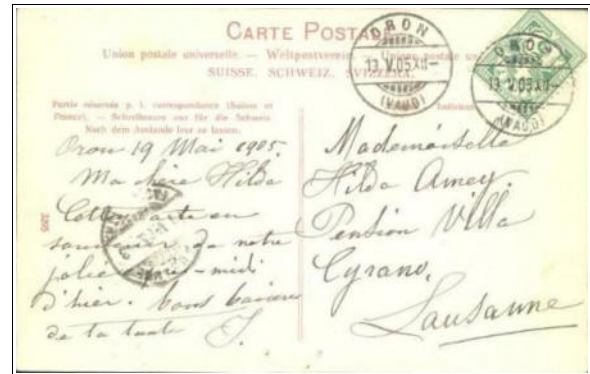 CARTE POSTALE
Union postale universelle. — Weltpostverein. — Unione postale
SUISSE. SCHWEIZ. SVIZZERA.
ORON
13 V.05 XII-
(VAUD)
ORON
13 V.05 XII-
(VAUD)
Partie réservée p. l. correspondance (Suisse et
France). — Schreibraum nur für die Schweiz
Nach dem Auslande leer zu lassen.
Oron 19 Mai 1905.
Ma chère Hilda
Cette carte en
souvenir de notre
jolie après-midi
d'hier. Bons baisers
de ta tante J.
Mademoiselle
Hilda Amey
Pension Villa
Cyrano,
Lausanne